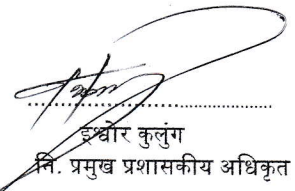 इश्वोर कुलुंग
नि. प्रमुख प्रशासकीय अधिकृत